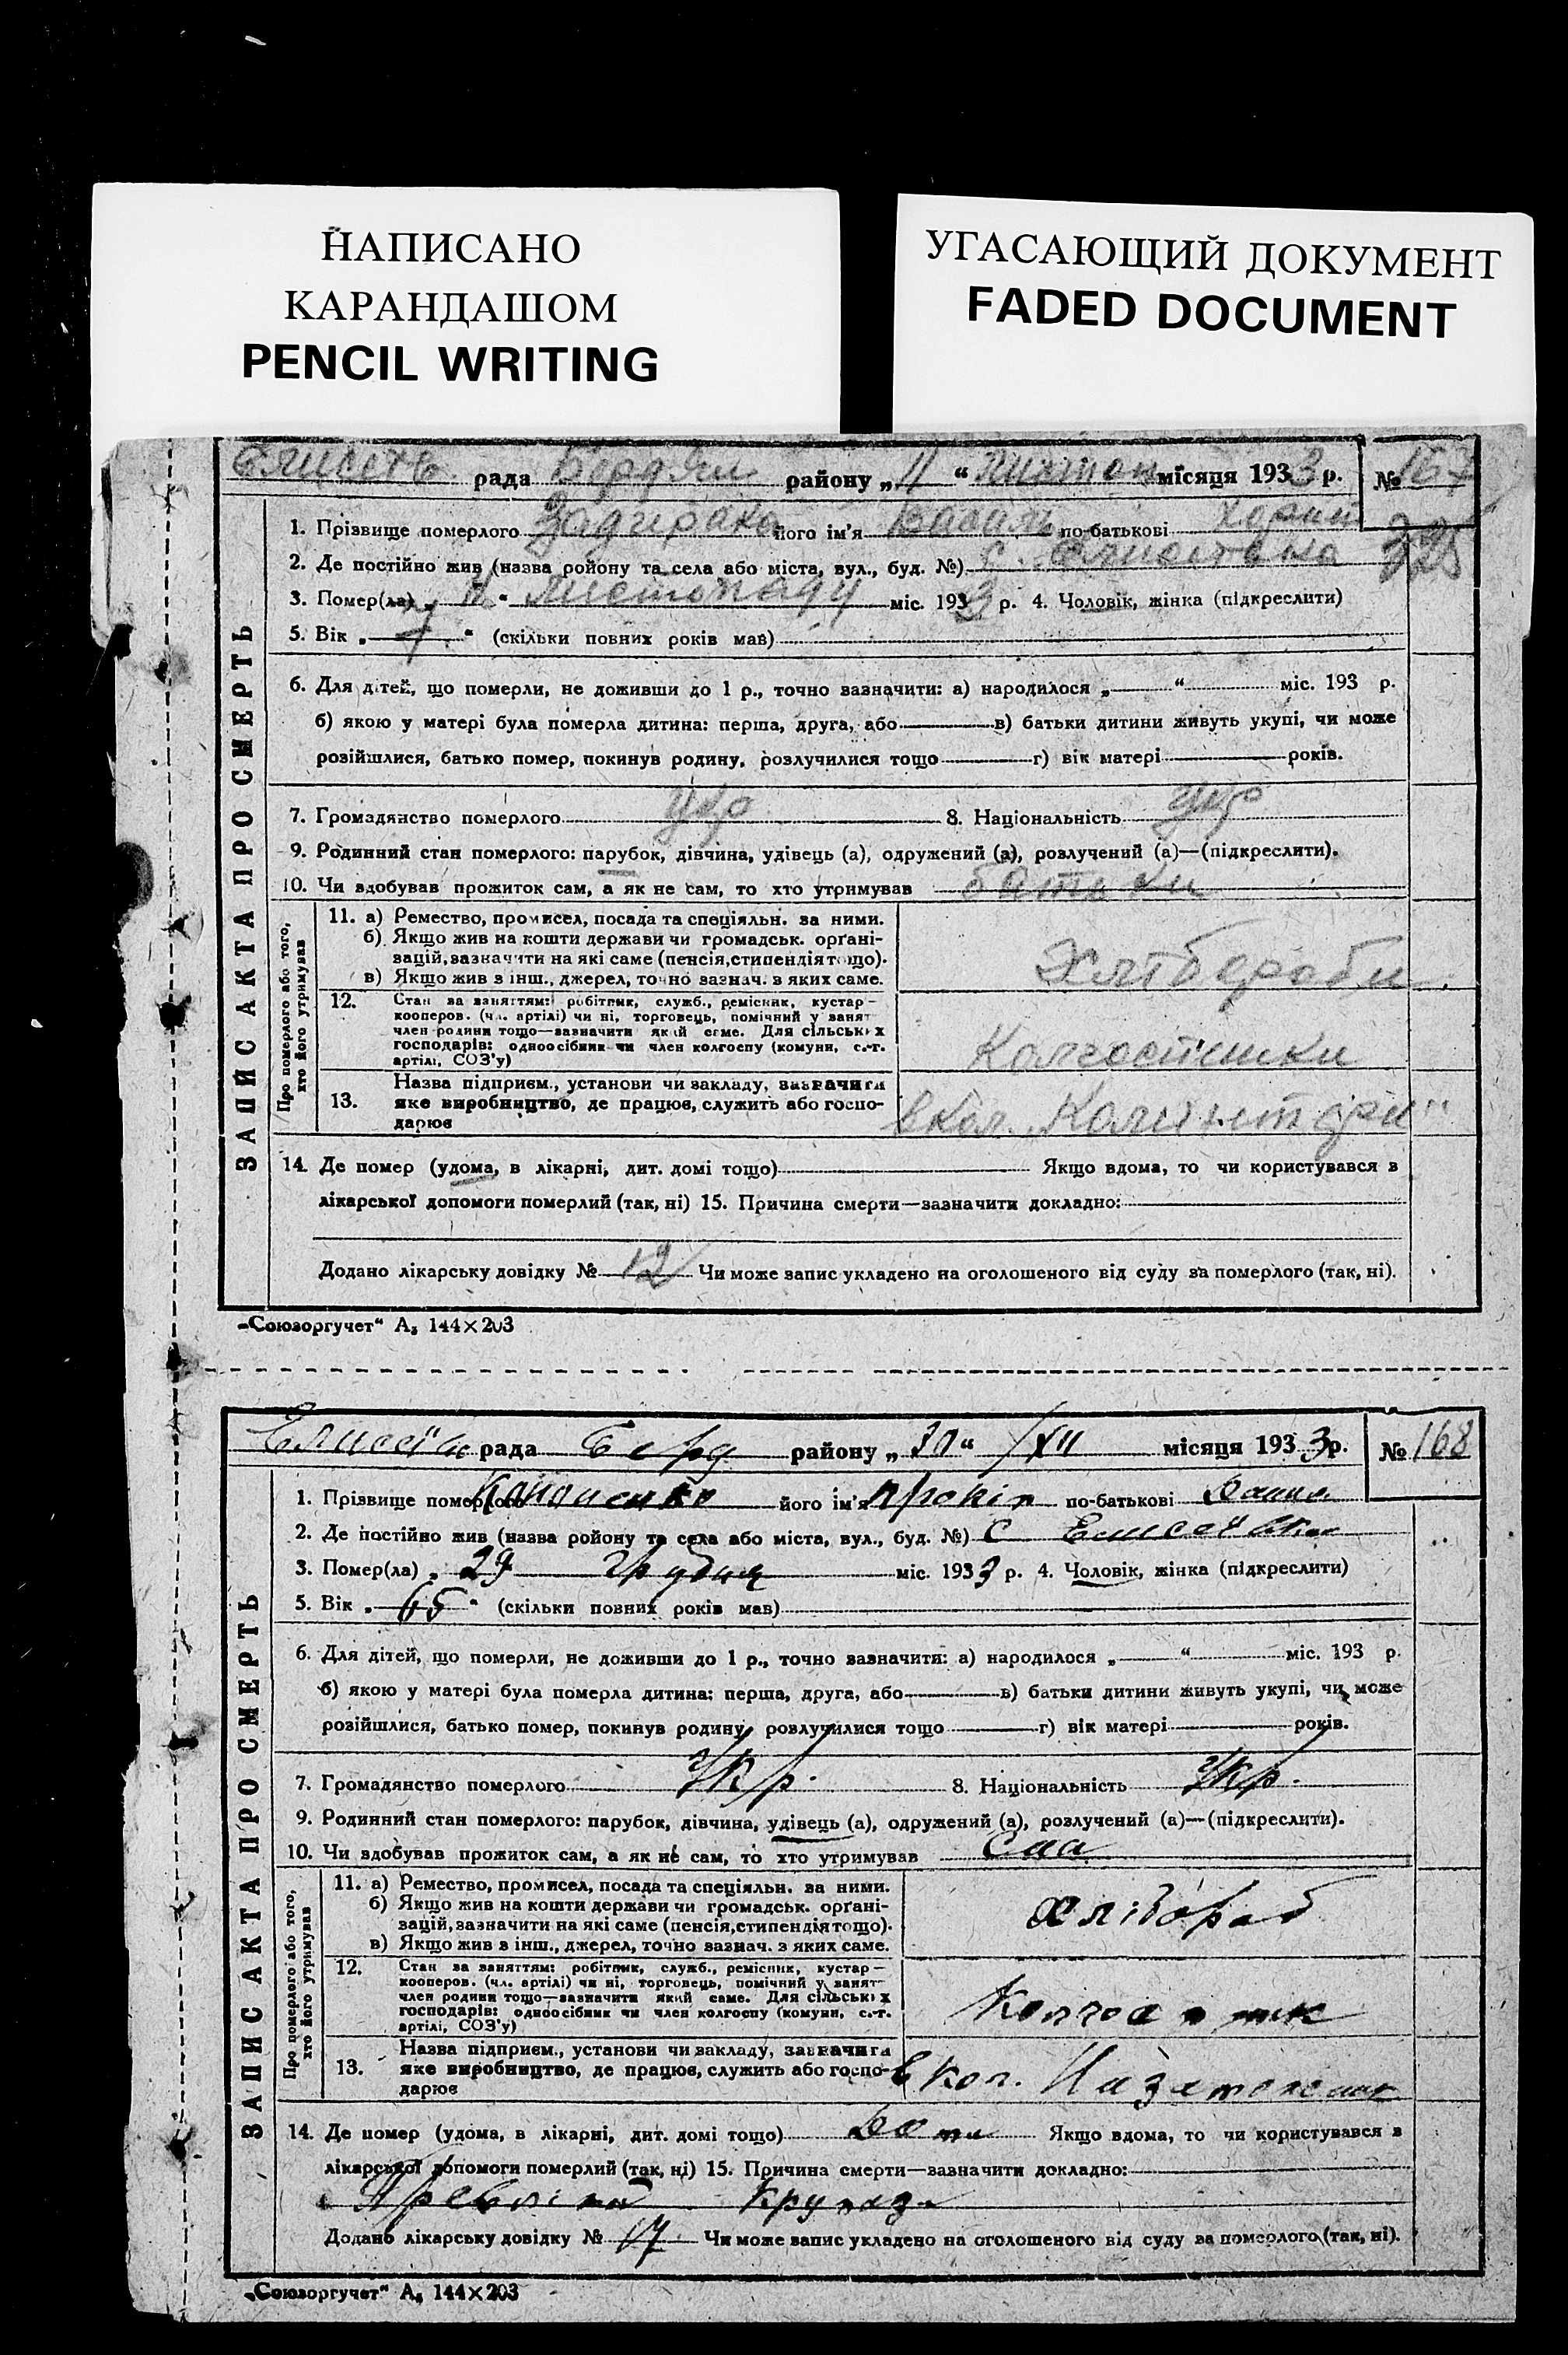 НАПИСАНО
КАРАНДАШОМ
PENCIL WRITING
УГАСАЮЩИЙ ДОКУМЕНТ
FADED DOCUMENT
ЗАПИС АКТА ПРО СМЕРТЬ
рада Бердян району „11“ Листоп місяця 1933 р. № 167
1. Прізвище померлого Задирака його ім'я Василь по-батькові
2. Де постійно жив (назва ройону та села або міста, вул., буд. №) с.
325
3. Помер(ла) „11“ листопаду міс. 1933 р. 4. Чоловік, жінка (підкреслити)
5. Вік „ “ (скільки повних років мав)
6. Для дітей, що померли, не доживши до 1 р., точно зазначити: а) народилося „ “ міс. 193 р.
б) якою у матері була померла дитина: перша, друга, або в) батьки дитини живуть укупі, чи може
розійшлися, батько помер, покинув родину, розлучилися тощо г) вік матері років.
7. Громадянство померлого Укр 8. Національність Укр
9. Родинний стан померлого: парубок, дівчина, удівець (а), одружений (а), розлучений (а)—(підкреслити).
10. Чи здобував прожиток сам, а як не сам, то хто утримував батьки
Про померлого або того, хто його утримував
11. а) Ремество, промисел, посада та спеціяльн. за ними.
б) Якщо жив на кошти держави чи громадськ. органі-
зацій, зазначити на які саме (пенсія, стипендія тощо).
в) Якщо жив з інш., джерел, точно зазнач. з яких саме.
Хлібороби
12. Стан за заняттям: робітник, служб., ремісник, кустар—
кооперов. (чл. артілі) чи ні, торговець, помічний у занят—
член родини тощо—зазначити який саме. Для сільських
господарів: одноосібник чи член колгоспу (комуни, с.-г.
артілі, СОЗ'у)
Колгоспники
13. Назва підприєм., установи чи закладу, зазначити
яке виробництво, де працює, служить або госпо-
дарює
в кол. „Комінтерн“
14. Де помер (удома, в лікарні, дит. домі тощо) Якщо вдома, то чи користувався з
лікарської допомоги померлий (так, ні) 15. Причина смерти—зазначити докладно:
Додано лікарську довідку № 12 Чи може запис укладено на оголошеного від суду за померлого (так, ні).
„Союзоргучет“ А₅ 144×203
ЗАПИС АКТА ПРО СМЕРТЬ
рада Берд району „30“ /XII місяця 1933 р. № 168
1. Прізвище померлого Кононенко його ім'я Прокіп по-батькові Данил.
2. Де постійно жив (назва ройону та села або міста, вул., буд. №) с Елисеївка
3. Помер(ла) „ 29 Грудня міс. 1933 р. 4. Чоловік, жінка (підкреслити)
5. Вік „ 65 “ (скільки повних років мав)
6. Для дітей, що померли, не доживши до 1 р., точно зазначити: а) народилося „ “ міс. 193 р.
б) якою у матері була померла дитина: перша, друга, або в) батьки дитини живуть укупі, чи може
розійшлися, батько помер, покинув родину, розлучилися тощо г) вік матері років.
7. Громадянство померлого Укр. 8. Національність Укр.
9. Родинний стан померлого: парубок, дівчина, удівець (а), одружений (а), розлучений (а)—(підкреслити).
10. Чи здобував прожиток сам, а як не сам, то хто утримував Сам
Про померлого або того, хто його утримував
11. а) Ремество, промисел, посада та спеціяльн. за ними.
б) Якщо жив на кошти держави чи громадськ. органі-
зацій, зазначити на які саме (пенсія, стипендія тощо).
в) Якщо жив з інш., джерел, точно зазнач. з яких саме.
Хлібороб
12. Стан за заняттям: робітник, служб., ремісник, кустар—
кооперов. (чл. артілі) чи ні, торговець, помічний у занят—
член родини тощо—зазначити який саме. Для сільських
господарів: одноосібник чи член колгоспу (комуни, с.-г.
артілі, СОЗ'у)
Колгоспник
13. Назва підприєм., установи чи закладу, зазначити
яке виробництво, де працює, служить або госпо-
дарює
в кол.
14. Де помер (удома, в лікарні, дит. домі тощо) Дома Якщо вдома, то чи користувався з
лікарської допомоги померлий (так, ні) 15. Причина смерти—зазначити докладно:
Додано лікарську довідку № 17 Чи може запис укладено на оголошеного від суду за померлого (так, ні).
„Союзоргучет“ А₅ 144×203